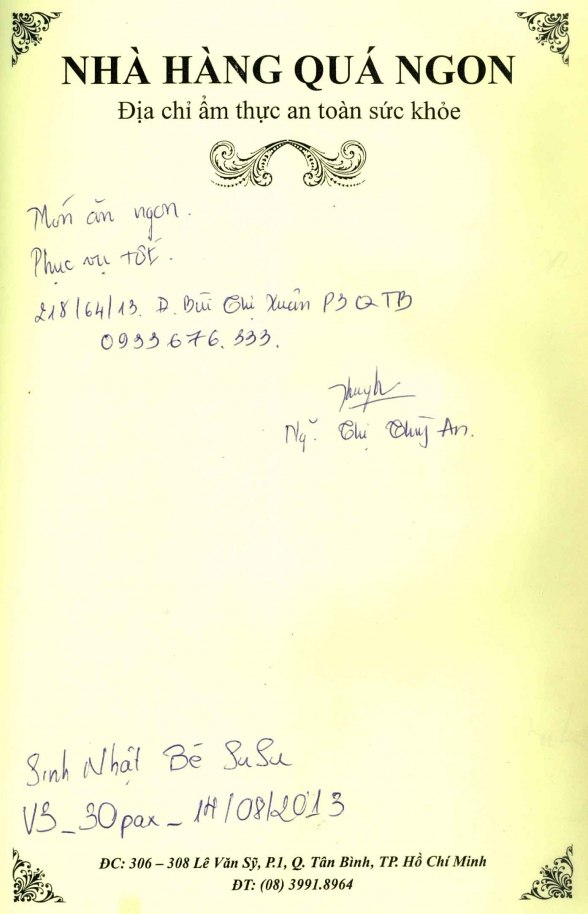 NHÀ HÀNG QUÁ NGON
Địa chỉ ẩm thực an toàn sức khỏe
Món ăn ngon.
Phục vụ tốt.
218/64/13. D. Bùi Thị Xuân P3 Q TB
0933676.333.
Ng̃. Thị Thùy An.
Sinh Nhật Bé SuSu
V3_30pax_ 14/08/2013
ĐC: 306 – 308 Lê Văn Sỹ, P.1, Q. Tân Bình, TP. Hồ Chí Minh
ĐT: (08) 3991.8964